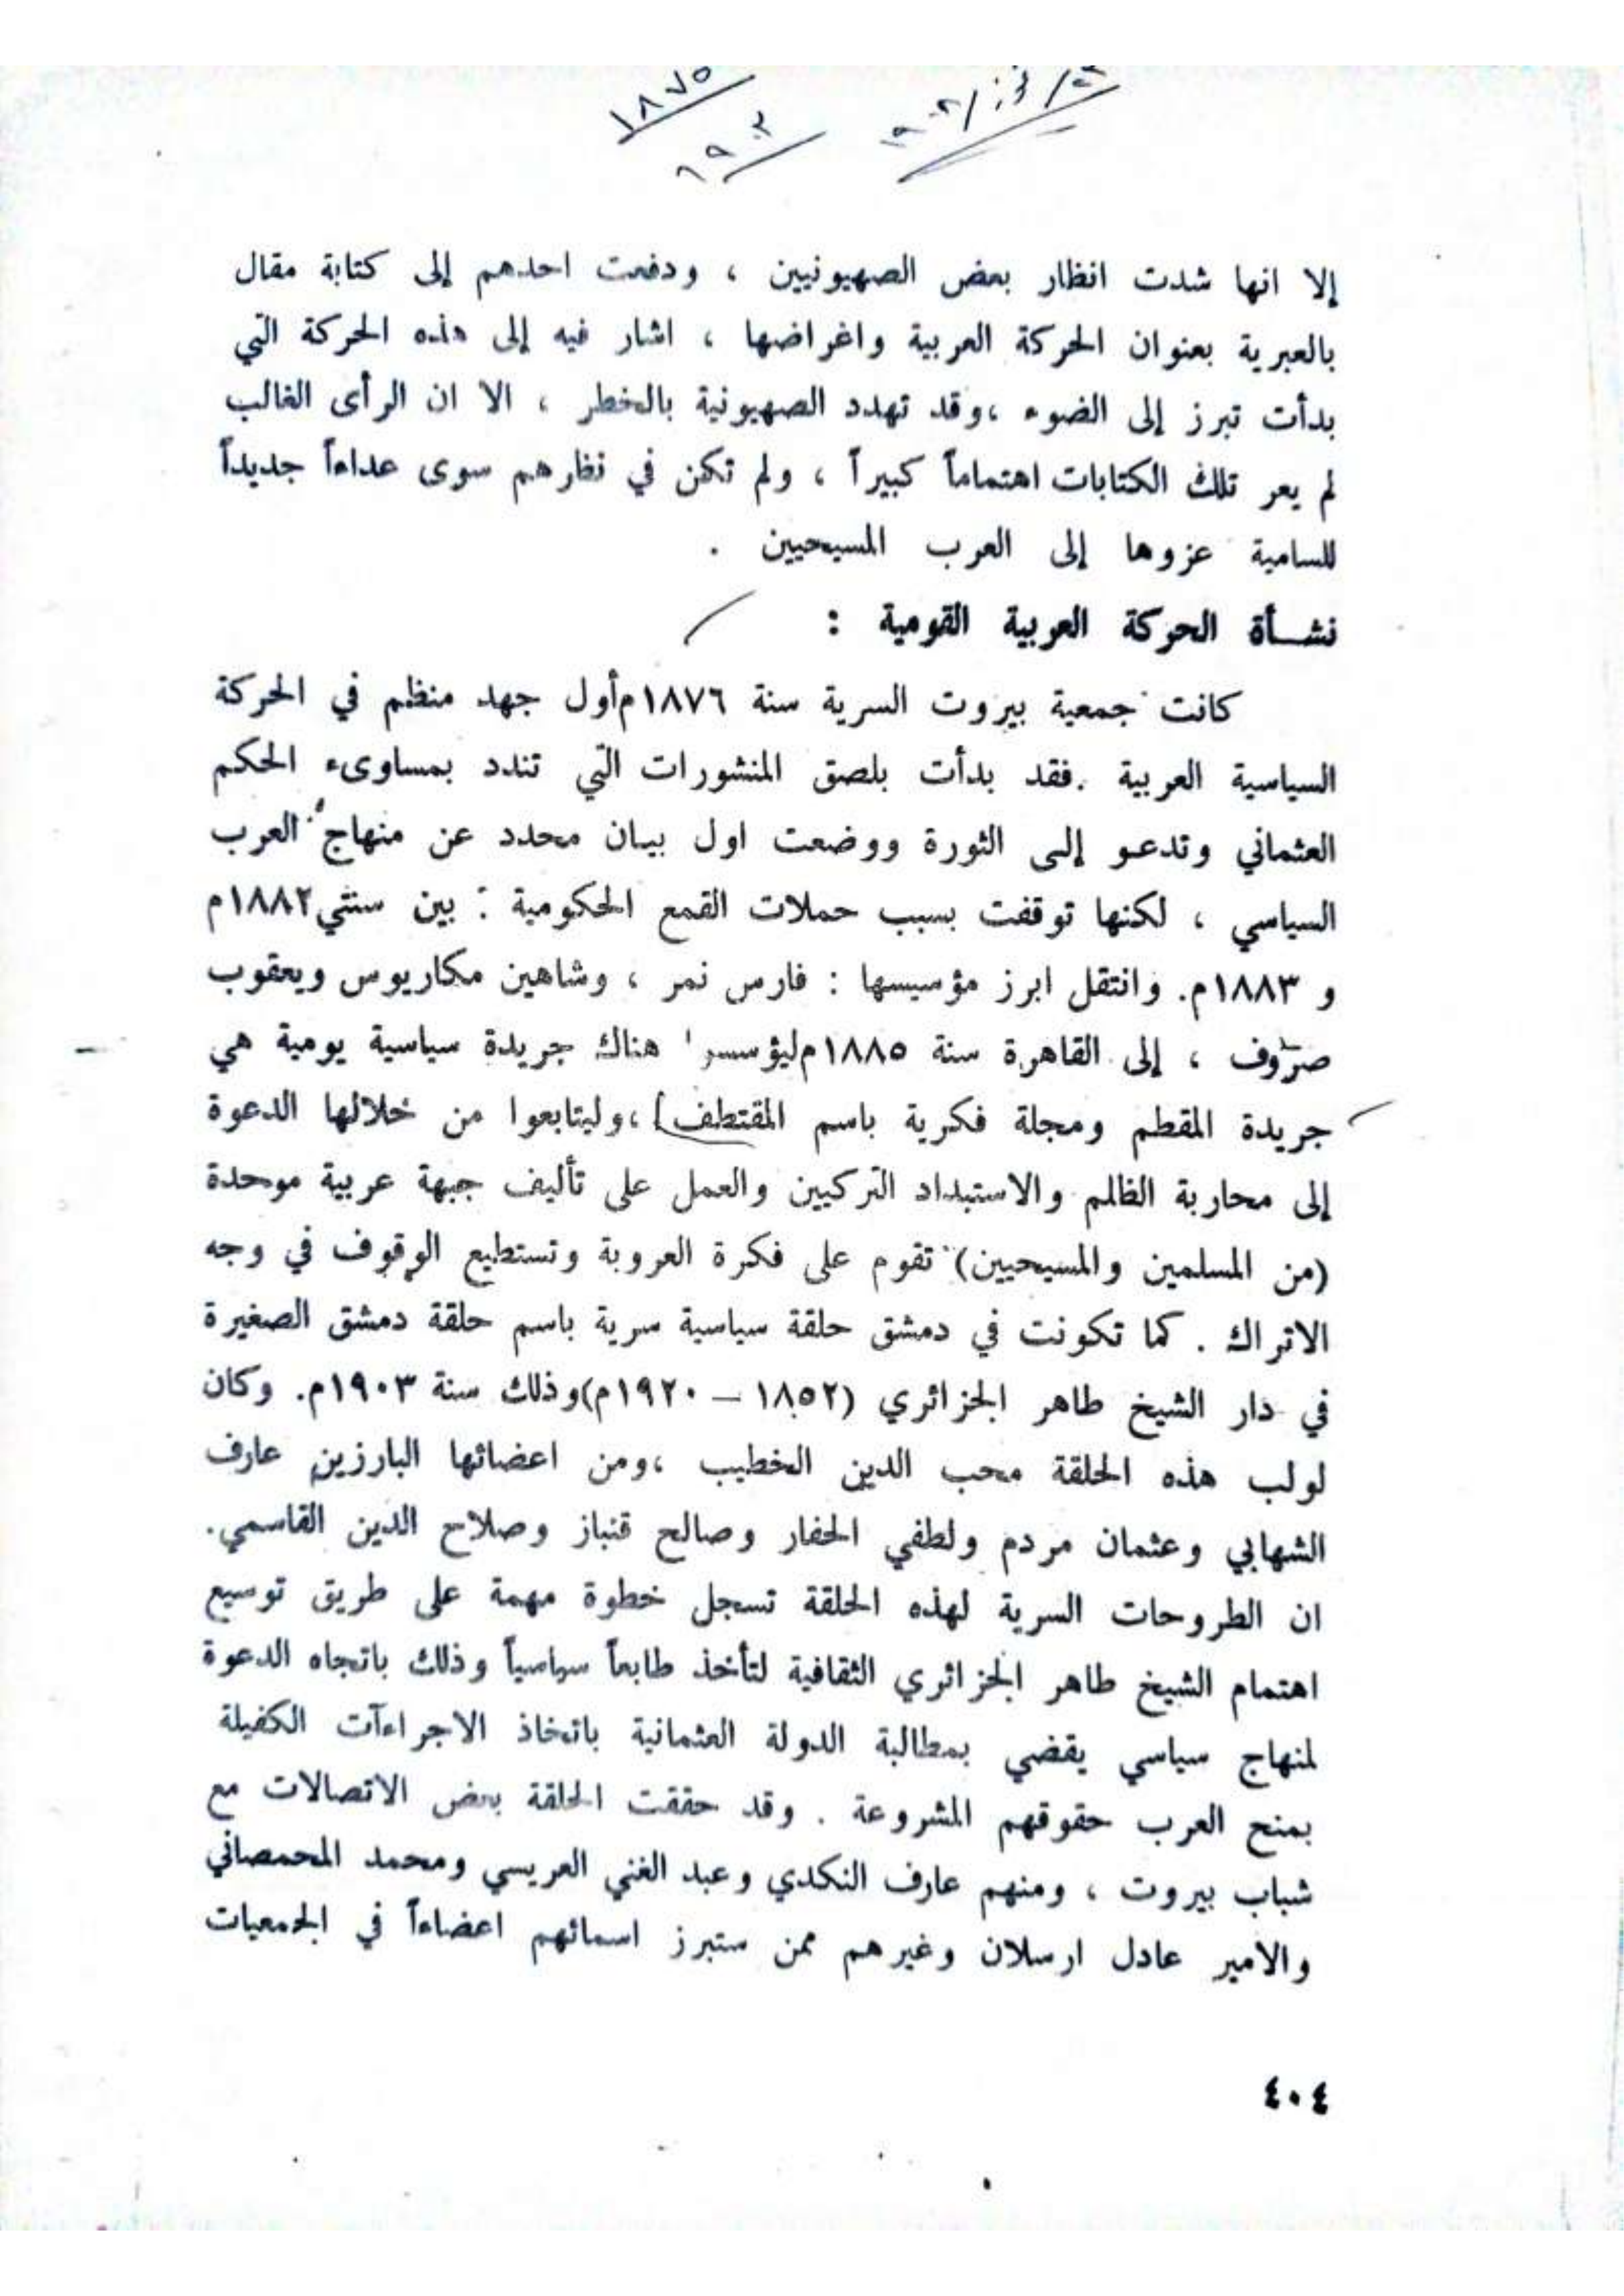 ١٨٧٥
١٩٠٣
إلا انها شدت انظار بعض الصهيونيين ، ودفعت احدهم إلى كتابة مقال
بالعبرية بعنوان الحركة العربية واغراضها ، اشار فيه إلى هذه الحركة التي
بدأت تبرز إلى الضوء ،وقد تهدد الصهيونية بالخطر ، الا ان الرأى الغالب
لم يعر تلك الكتابات اهتماماً كبيراً ، ولم تكن في نظارهم سوى عداءاً جديداً
للسامية عزوها إلى العرب المسيحيين .
نشــأة الحركة العربية القومية :
كانت جمعية بيروت السرية سنة ١٨٧٦م أول جهد منظم في الحركة
السياسية العربية .فقد بدأت بلصق المنشورات التي تندد بمساوىء الحكم
العثماني وتدعـو إلـى الثورة ووضعت اول بيـان محدد عن منهاج العرب
السياسي ، لكنها توقفت بسبب حملات القمع الحكومية : بين سنتي ١٨٨٢م
و ١٨٨٣م. وانتقل ابرز مؤسيسها : فارس نمر ، وشاهين مكاريوس ويعقوب
صرّوف ، إلى القاهرة سنة ١٨٨٥م ليؤسسوا هناك جريدة سياسية يومية هي
جريدة المقطم ومجلة فكرية باسم المقتطف ،وليتابعوا من خلالها الدعوة
إلى محاربة الظالم والاستبداد التركيين والعمل على تأليف جبهة عربية موحدة
(من المسلمين والمسيحيين) تقوم على فكرة العروبة وتستطيع الوقوف في وجه
الاتراك . كما تكونت في دمشق حلقة سياسية سرية باسم حلقة دمشق الصغيرة
في دار الشيخ طاهر الجزائري (١٨٥٢ – ١٩٢٠م)وذلك سنة ١٩٠٣م. وكان
لولب هذه الحلقة محب الدين الخطيب ،ومن اعضائها البارزين عارف
الشهابي وعثمان مردم ولطفي الحفار وصالح قنباز وصلاح الدين القاسمي.
ان الطروحات السرية لهذه الحلقة تسجل خطوة مهمة على طريق توسيع
اهتمام الشيخ طاهر الجزائري الثقافية لتأخذ طابعاً سياسياً وذلك باتجاه الدعوة
لمنهاج سياسي يقضي بمطالبة الدولة العثمانية باتخاذ الاجراءآت الكفيلة
بمنح العرب حقوقهم المشروعة . وقد حققت الحلقة بعض الاتصالات مع
شباب بيروت ، ومنهم عارف النكدي وعبد الغني العريسي ومحمد المحمصاني
والامير عادل ارسلان وغيرهم ممن ستبرز اسمائهم اعضاءاً في الجمعيات
٤٠٤